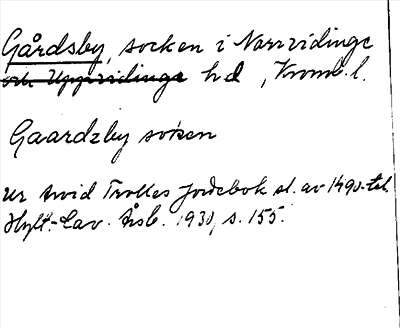 Gårdsby, socken i Norrvidinge
och Uppvidinge hd, Kronob. l.
Gaardzby soken
ur Arvid Trolles jordebok sl. av 1490-tal.
Hylt.-Cav. Årsb. 1930, s. 155.